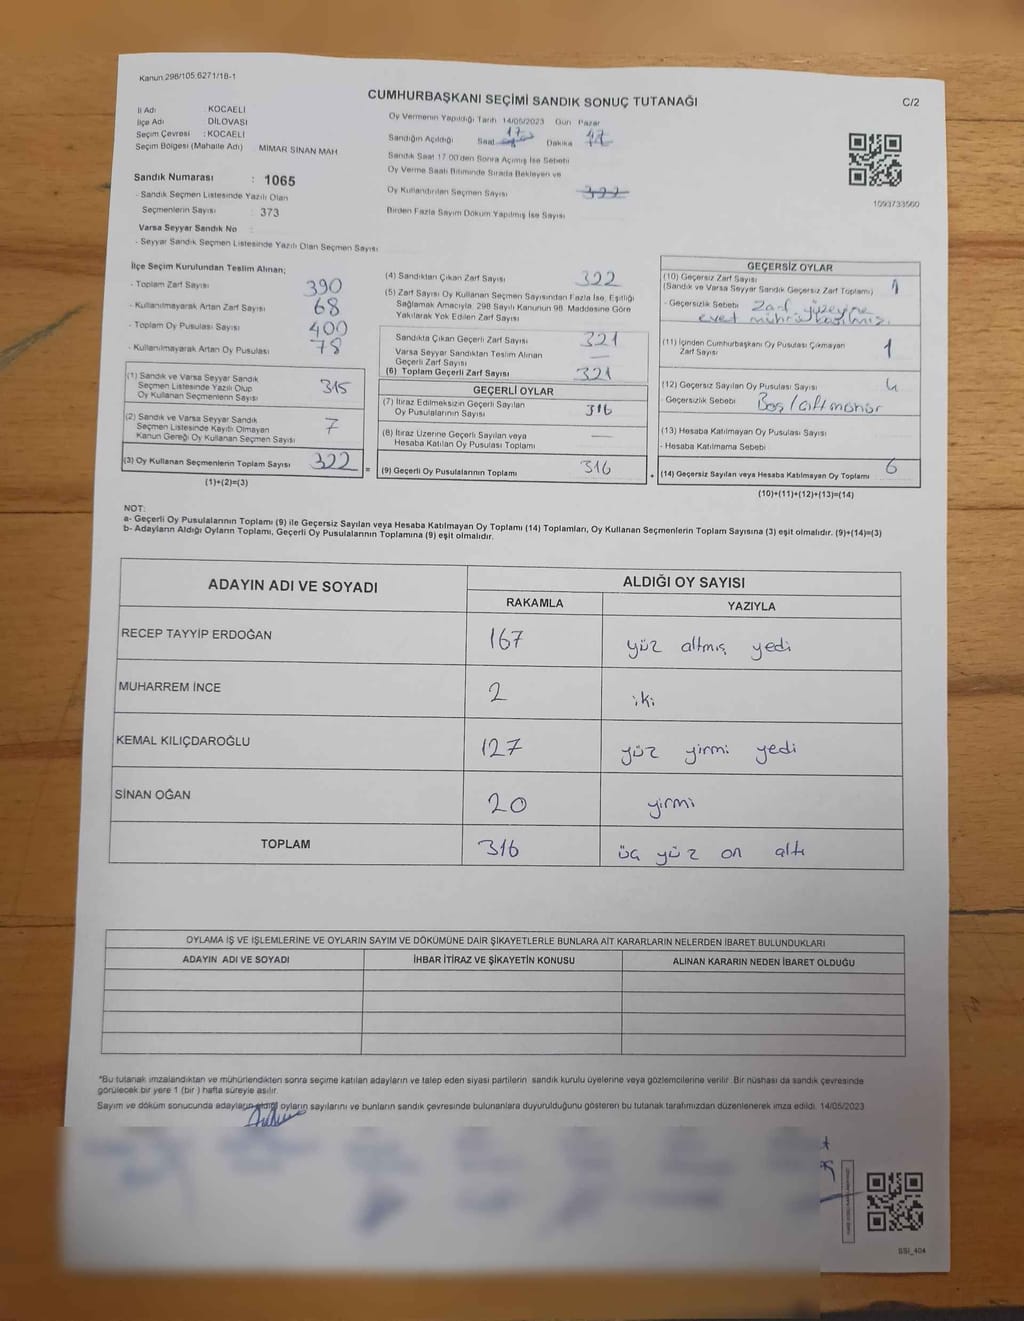 Kanun 298/105 6271/18-1
CUMHURBAŞKANI SEÇİMİ SANDIK SONUÇ TUTANAĞI
C/2
İl Adı : KOCAELİ
İlçe Adı : DİLOVASI
Seçim Çevresi : KOCAELİ
Seçim Bölgesi (Mahalle Adı) : MİMAR SİNAN MAH
Sandık Numarası : 1065
- Sandık Seçmen Listesinde Yazılı Olan
Seçmenlerin Sayısı : 373
Varsa Seyyar Sandık No
- Seyyar Sandık Seçmen Listesinde Yazılı Olan Seçmen Sayısı
Oy Vermenin Yapıldığı Tarih 14/05/2023 Gün Pazar
Sandığın Açıldığı Saat 17 Dakika
Sandık Saat 17.00'den Sonra Açılmış İse Sebebi
Oy Verme Saati Bitiminde Sırada Bekleyen ve
Oy Kullandırılan Seçmen Sayısı 322
Birden Fazla Sayım Döküm Yapılmış İse Sayısı
1093733560
İlçe Seçim Kurulundan Teslim Alınan;
- Toplam Zarf Sayısı 390
- Kullanılmayarak Artan Zarf Sayısı 68
- Toplam Oy Pusulası Sayısı 400
- Kullanılmayarak Artan Oy Pusulası 78
(1) Sandık ve Varsa Seyyar Sandık
Seçmen Listesinde Yazılı Olup
Oy Kullanan Seçmenlerin Sayısı 315
(2) Sandık ve Varsa Seyyar Sandık
Seçmen Listesinde Kayıtlı Olmayan
Kanun Gereği Oy Kullanan Seçmen Sayısı 7
(3) Oy Kullanan Seçmenlerin Toplam Sayısı 322
(1)+(2)=(3)
=
(4) Sandıktan Çıkan Zarf Sayısı 322
(5) Zarf Sayısı Oy Kullanan Seçmen Sayısından Fazla İse, Eşitliği
Sağlamak Amacıyla, 298 Sayılı Kanunun 98. Maddesine Göre
Yakılarak Yok Edilen Zarf Sayısı
Sandıkta Çıkan Geçerli Zarf Sayısı 321
Varsa Seyyar Sandıktan Teslim Alınan
Geçerli Zarf Sayısı —
(6) Toplam Geçerli Zarf Sayısı 321
GEÇERLİ OYLAR
(7) İtiraz Edilmeksizin Geçerli Sayılan
Oy Pusulalarının Sayısı 316
(8) İtiraz Üzerine Geçerli Sayılan veya
Hesaba Katılan Oy Pusulası Toplamı —
(9) Geçerli Oy Pusulalarının Toplamı 316
+
GEÇERSİZ OYLAR
(10) Geçersiz Zarf Sayısı
(Sandık ve Varsa Seyyar Sandık Geçersiz Zarf Toplamı) 1
- Geçersizlik Sebebi Zarf yüzeyine
evet mührü
(11) İçinden Cumhurbaşkanı Oy Pusulası Çıkmayan
Zarf Sayısı 1
(12) Geçersiz Sayılan Oy Pusulası Sayısı 4
Geçersizlik Sebebi Boş / çift mühür
(13) Hesaba Katılmayan Oy Pusulası Sayısı
- Hesaba Katılmama Sebebi
(14) Geçersiz Sayılan veya Hesaba Katılmayan Oy Toplamı 6
(10)+(11)+(12)+(13)=(14)
NOT:
a- Geçerli Oy Pusulalarının Toplamı (9) ile Geçersiz Sayılan veya Hesaba Katılmayan Oy Toplamı (14) Toplamları, Oy Kullanan Seçmenlerin Toplam Sayısına (3) eşit olmalıdır. (9)+(14)=(3)
b- Adayların Aldığı Oyların Toplamı, Geçerli Oy Pusulalarının Toplamına (9) eşit olmalıdır.
ADAYIN ADI VE SOYADI ALDIĞI OY SAYISI
RAKAMLA YAZIYLA
RECEP TAYYİP ERDOĞAN 167 yüz altmış yedi
MUHARREM İNCE 2 iki
KEMAL KILIÇDAROĞLU 127 yüz yirmi yedi
SİNAN OĞAN 20 yirmi
TOPLAM 316 üç yüz on altı
OYLAMA İŞ VE İŞLEMLERİNE VE OYLARIN SAYIM VE DÖKÜMÜNE DAİR ŞİKAYETLERLE BUNLARA AİT KARARLARIN NELERDEN İBARET BULUNDUKLARI
ADAYIN ADI VE SOYADI İHBAR İTİRAZ VE ŞİKAYETİN KONUSU ALINAN KARARIN NEDEN İBARET OLDUĞU
*Bu tutanak imzalandıktan ve mühürlendikten sonra seçime katılan adayların ve talep eden siyasi partilerin sandık kurulu üyelerine veya gözlemcilerine verilir. Bir nüshası da sandık çevresinde
görülecek bir yere 1 (bir) hafta süreyle asılır.
Sayım ve döküm sonucunda adayların aldığı oyların sayılarını ve bunların sandık çevresinde bulunanlara duyurulduğunu gösteren bu tutanak tarafımızdan düzenlenerek imza edildi. 14/05/2023
SSI_404